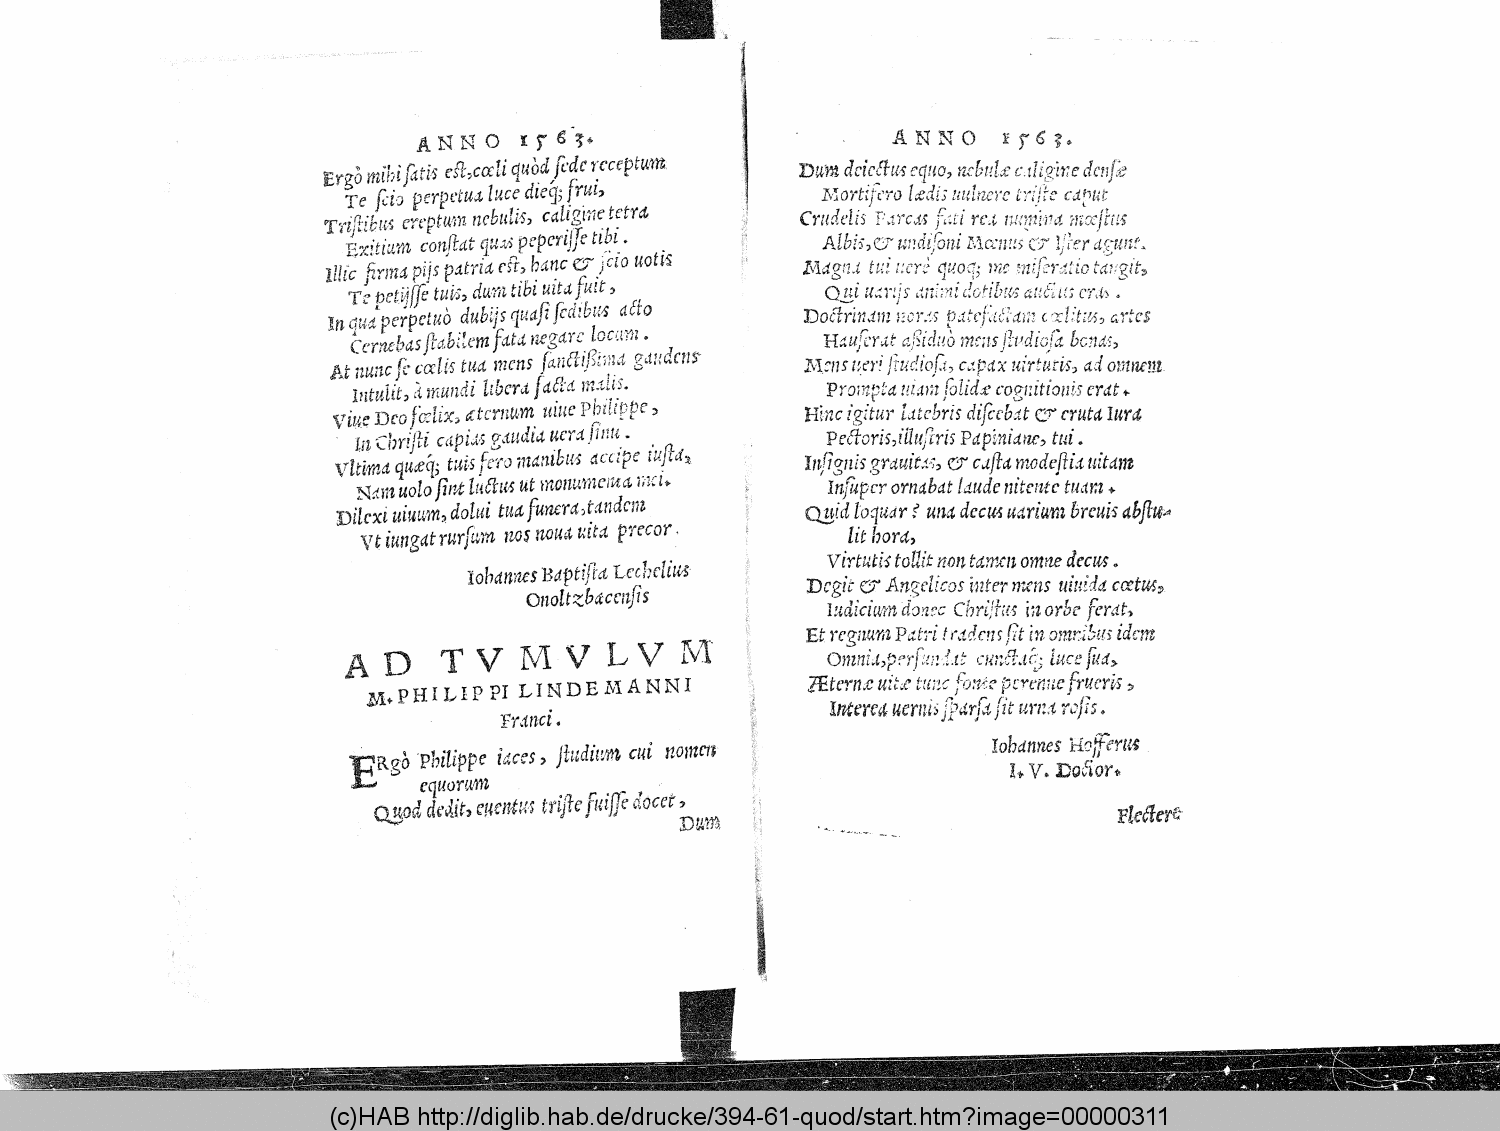 ANNO 1563.
Ergò mihi ſatis eſt, cœli quòd ſede receptum
Te ſcio perpetua luce dieq́; frui,
Triſtibus ereptum nebulis, caligine tetra
Exitium conſtat quas peperiſſe tibi.
Illic firma pijs patria eſt, hanc & ſcio uotis
Te petijſſe tuis, dum tibi uita fuit,
In qua perpetuò dubijs quaſi ſedibus acto
Cernebas ſtabilem fata negare locum.
At nunc ſe cœlis tua mens ſanctißima gaudens
Intulit, à mundi libera facta malis.
Viue Deo fœlix, æternum uiue Philippe,
In Chriſti capias gaudia uera ſinu.
Vltima quæq́; tuis fero manibus accipe iuſta,
Nam uolo ſint luctus ut monumenta mei.
Dilexi uiuum, dolui tua funera, tandem
Vt iungat rurſum nos noua uita precor.
Iohannes Baptiſta Lechelius
Onoltzbacenſis
AD TVMVLVM
M. PHILIPPI LINDEMANNI
Franci.
ERgò Philippe iaces, ſtudium cui nomen
equorum
Quod dedit, euentus triſte fuiſſe docet,
Dum
ANNO 1563.
Dum deiectus equo, nebulæ caligine denſæ
Mortifero lædis uulnere triſte caput
Crudelis Parcas fati rea numina mœſtus
Albis, & undiſoni Mœnus & Iſter agunt.
Magna tui uerè quoq; me miſeratio tangit,
Qui uarijs animi dotibus auctus eras.
Doctrinam noras patefactam cœlitus, artes
Hauſerat aßiduò mens ſtudioſa bonas,
Mens ueri ſtudioſa, capax uirtutis, ad omnem
Prompta uiam ſolidæ cognitionis erat.
Hinc igitur latebris diſcebat & eruta Iura
Pectoris, illuſtris Papiniane, tui.
Inſignis grauitas, & caſta modeſtia uitam
Inſuper ornabat laude nitente tuam.
Quid loquar? una decus uarium breuis abſtu-
lit hora,
Virtutis tollit non tamen omne decus.
Degit & Angelicos inter mens uiuida cœtus,
Iudicium donec Chriſtus in orbe ferat,
Et regnum Patri tradens ſit in omnibus idem
Omnia, perfundat cunctaq́; luce ſua,
Æternæ uitæ tunc fonte perenne frueris,
Interea uernis ſparſa ſit urna roſis.
Iohannes Hofferus
I. V. Doctor.
Flectere
(c)HAB http://diglib.hab.de/drucke/394-61-quod/start.htm?image=00000311